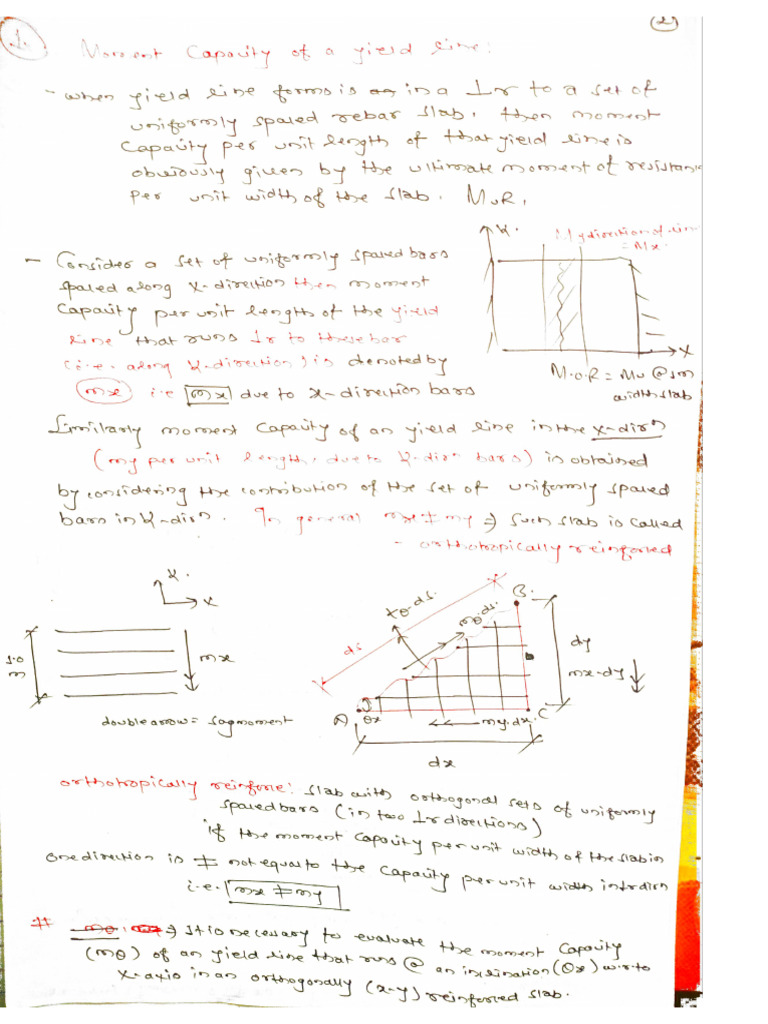 1.
2
Moment Capacity of a yield line:
- when yield line forms is in a ⊥r to a set of
uniformly spaced rebar slab, then moment
Capacity per unit length of that yield line is
obviously given by the ultimate moment of resistance
per unit width of the slab. MuR,
My direction of line
= Mx.
Y.
X
M.O.R = Mu @ 1m
width slab
- Consider a set of uniformly spaced bars
spaced along X-direction then moment
Capacity per unit length of the yield
line that runs ⊥r to these bar
(i.e. along Y-direction) is denoted by
(mx) i.e mx due to x-direction bars
Similarly moment Capacity of an yield line in the X-dirn
(my per unit length, due to Y-dirn bars) is obtained
by considering the contribution of the set of uniformly spaced
bars in Y-dirn. In general mx ≠ my ⇒ such slab is called
- orthotropically reinforced
Y.
X
1.0
m
mx
double arrow = sag moment
ds
tθ.ds.
mθ.ds.
B.
dy
mx.dy
A
θx
my.dx.
C
dx
orthotropically reinforce: slab with orthogonal sets of uniformly
spaced bars (in two ⊥r directions)
if the moment capacity per unit width of the slab in
one direction is ≠ not equal to the capacity per unit width in ⊥r dirn
i.e. mx ≠ my
# ⇒ It is necessary to evaluate the moment capacity
(mθ) of an yield line that runs @ an inclination (θx) w.r.to
X-axis in an orthogonally (x-y) reinforced slab.